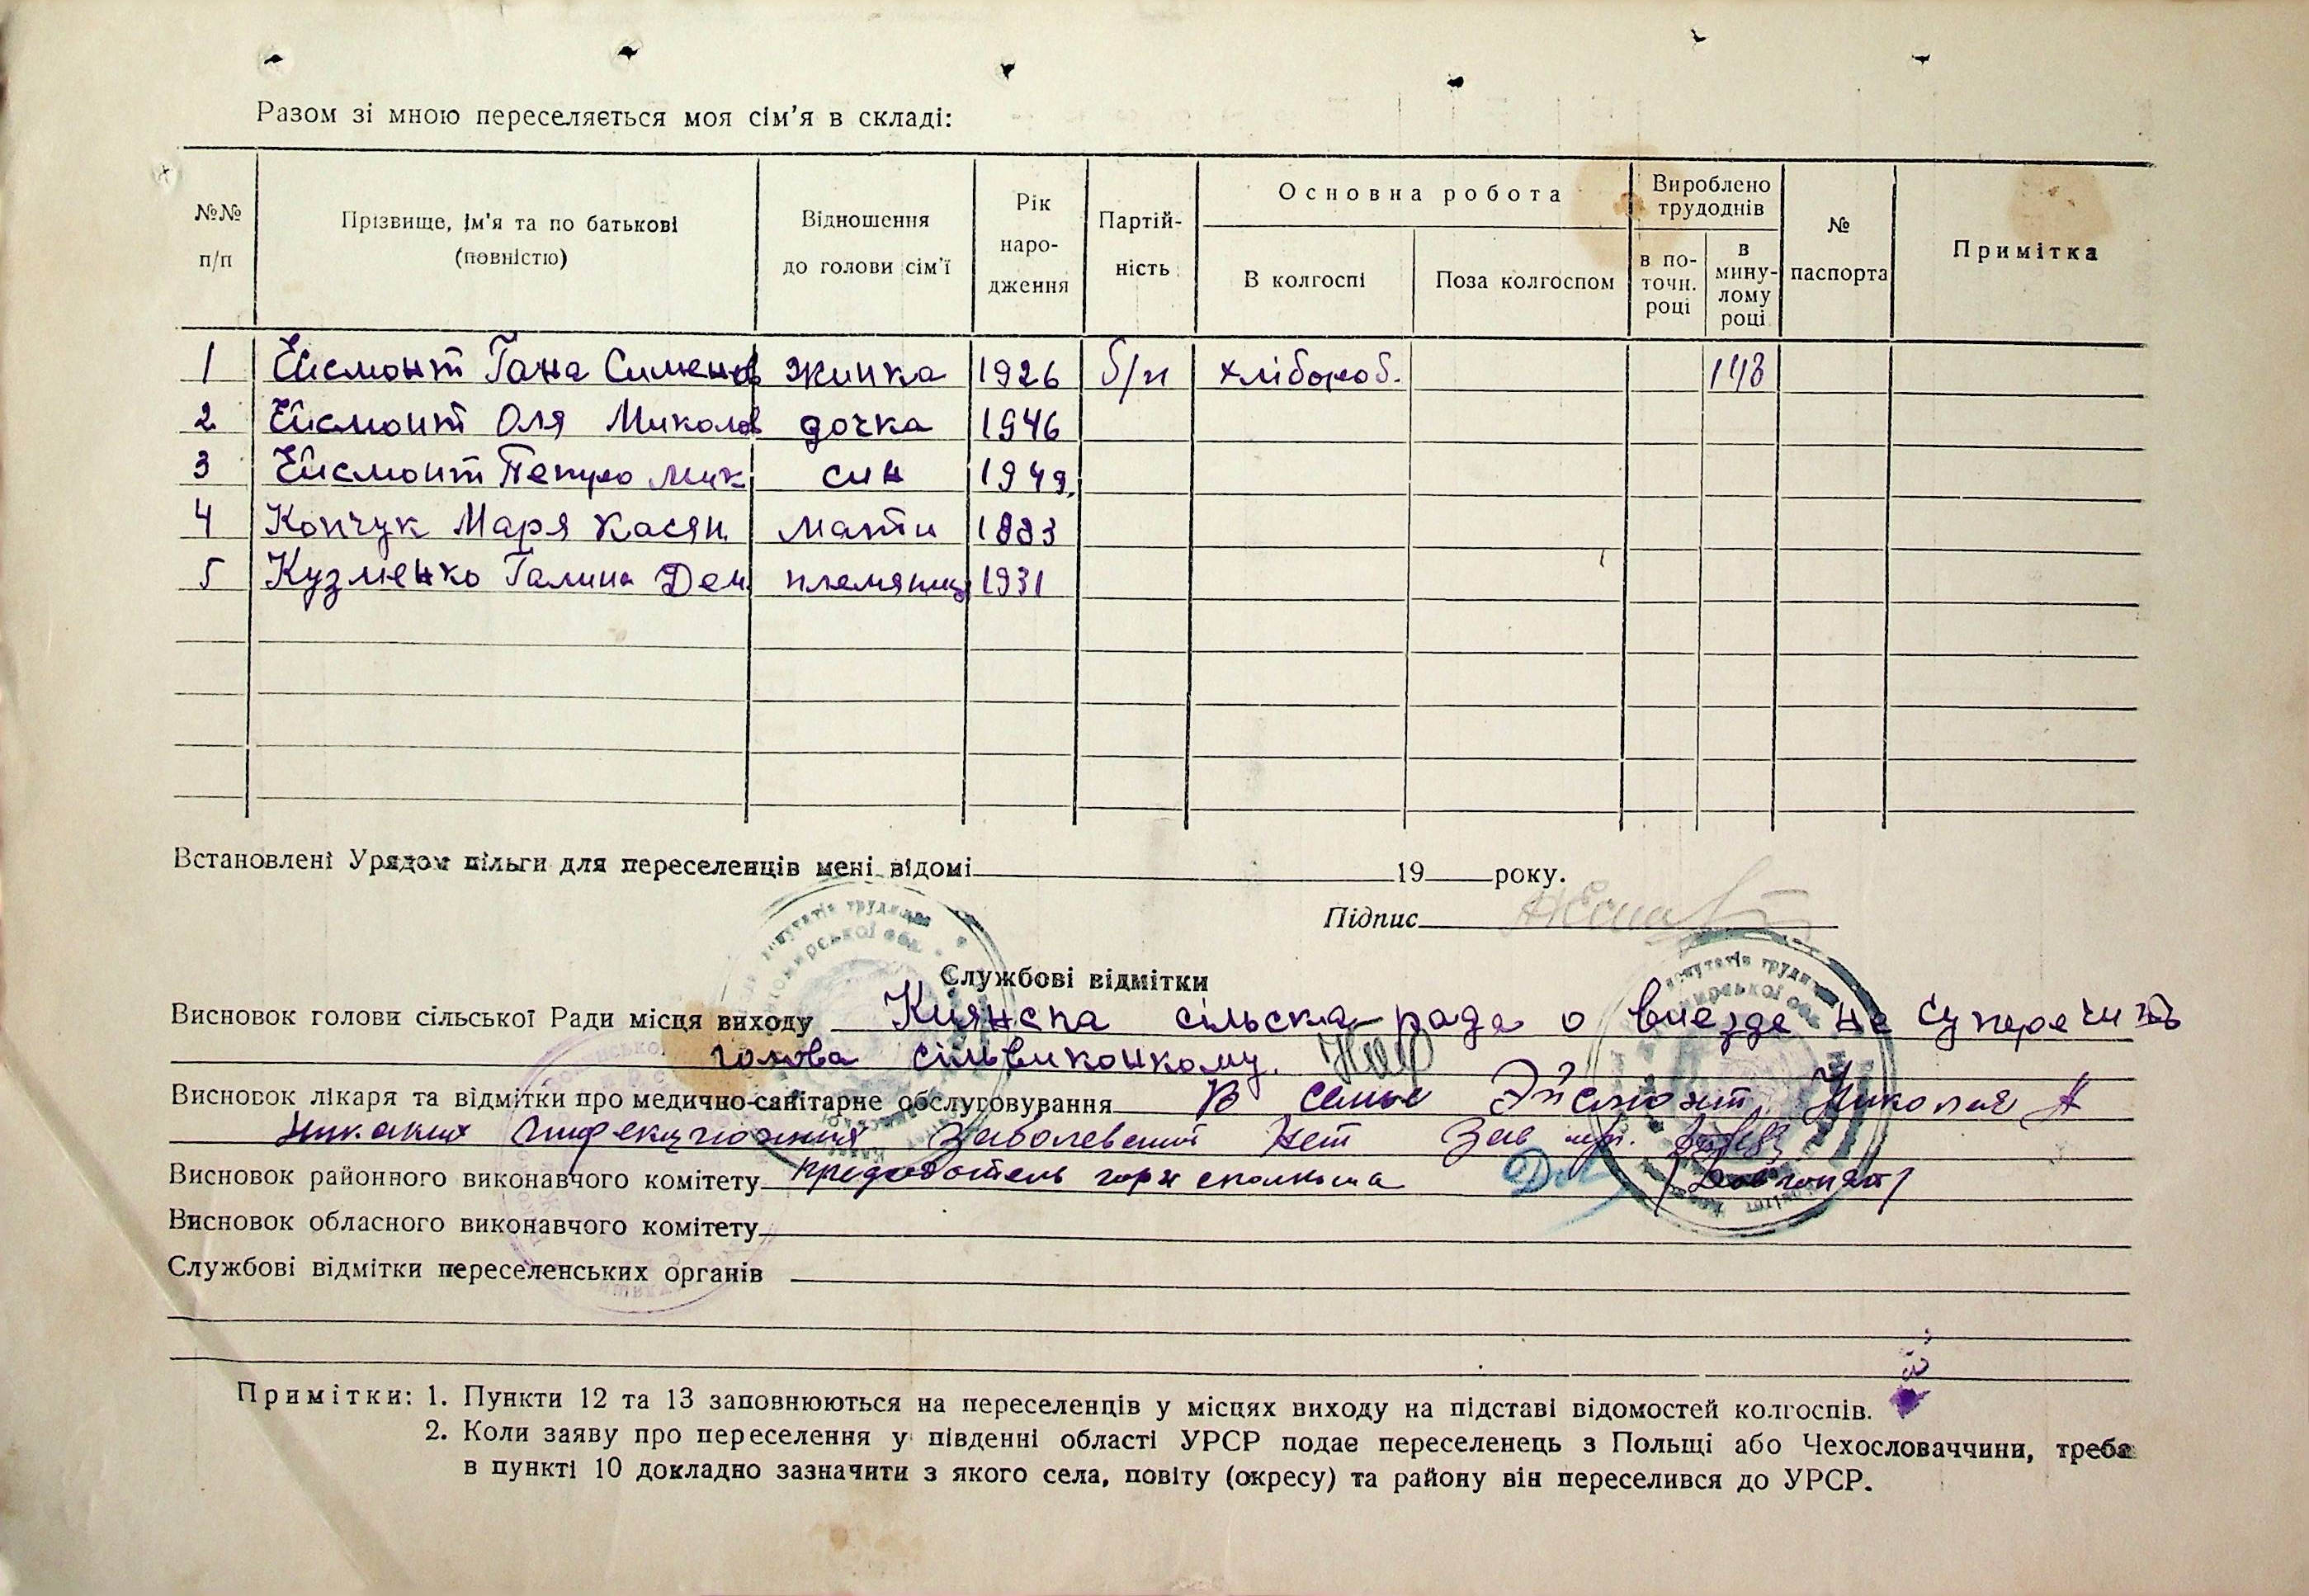 Разом зі мною переселяється моя сім'я в складі:
№№ п/п
Прізвище, ім'я та по батькові (повністю)
Відношення до голови сім'ї
Рік наро-дження
Партій-ність
Основна робота
В колгоспі
Поза колгоспом
Вироблено трудоднів
в по-точн. році
в мину-лому році
№ паспорта
Примітка
1 Ейсмонт Гана Сименов жинка 1926 б/п хлібороб. 148
2 Ейсмонт Оля Миколов дочка 1946
3 Ейсмонт Петро Мик син 1949
4 Копчук Маря Касян. мати 1883
5 Кузменко Галина Дем племяниц 1931
Встановлені Урядом пільги для переселенців мені відомі 19 року.
Підпис
Службові відмітки
Висновок голови сільської Ради місця виходу Киянска сільска рада о виезде не суперечить
голова сільвиконкому.
Висновок лікаря та відмітки про медично-санітарне обслуговування В семье Эйсмонт Николая А
никаких инфекционных заболеваний нет Зав
Висновок районного виконавчого комітету
Висновок обласного виконавчого комітету
Службові відмітки переселенських органів
Примітки: 1. Пункти 12 та 13 заповнюються на переселенців у місцях виходу на підставі відомостей колгоспів.
2. Коли заяву про переселення у південні області УРСР подає переселенець з Польщі або Чехословаччини, треба
в пункті 10 докладно зазначити з якого села, повіту (окресу) та району він переселився до УРСР.